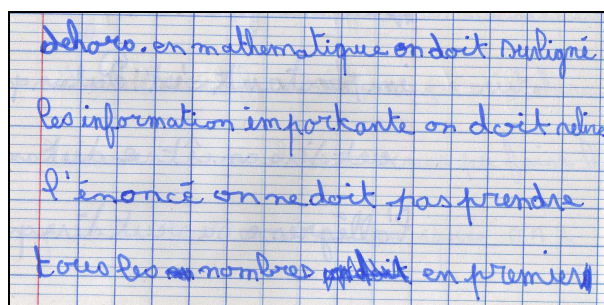 dehors. en mathematique on doit surligné
les information importante on doit relire
l'énoncé on ne doit pas prendre
tous les nombres en premier